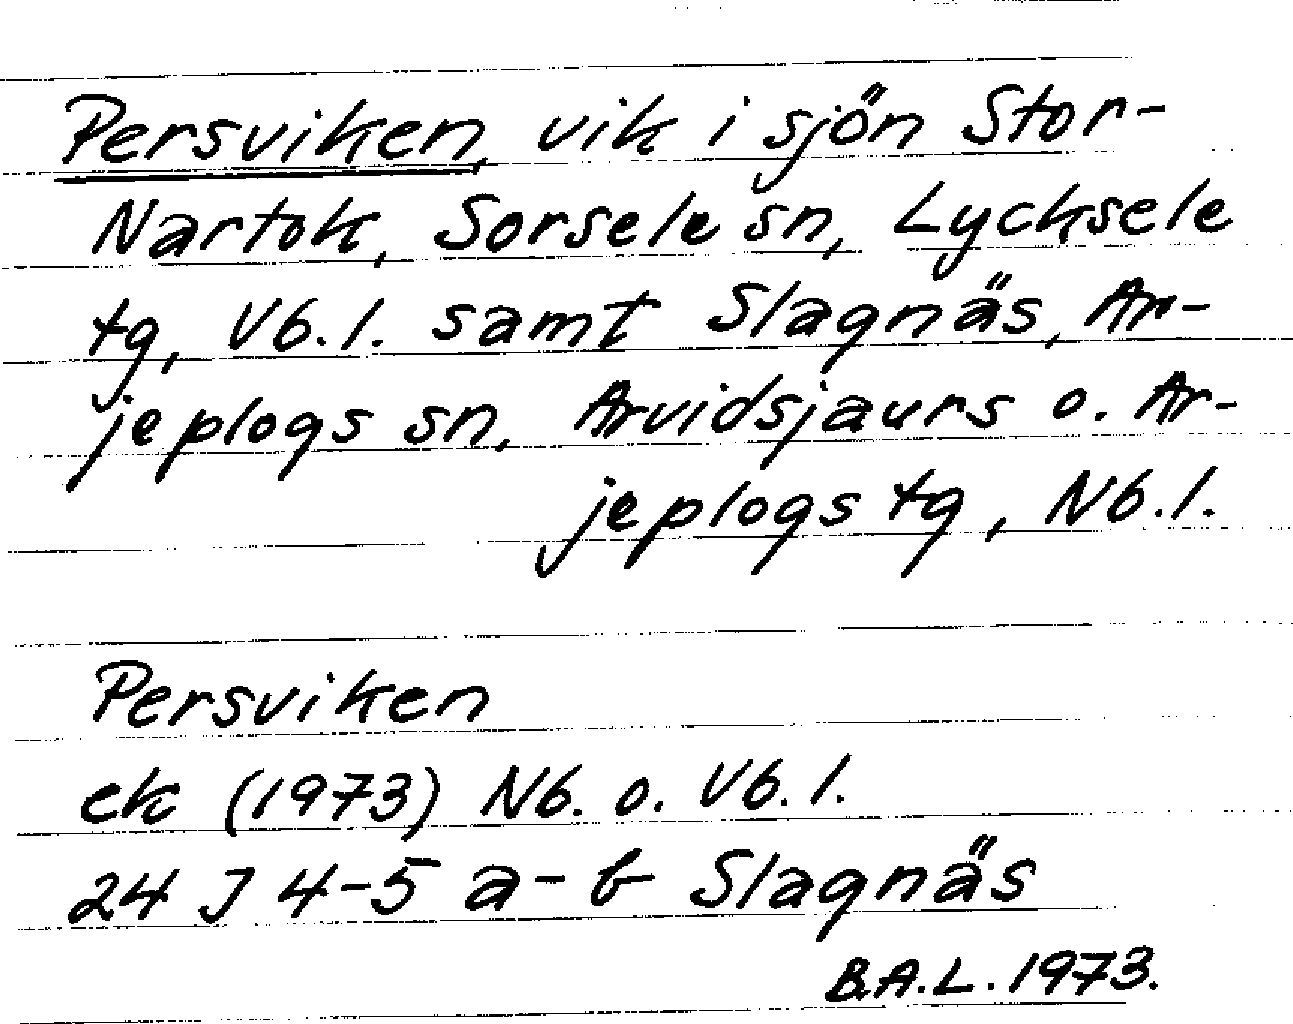 Persviken, vik i sjön Stor-
Nartok, Sorsele sn, Lycksele
tg, Vb.l. samt Slagnäs, Ar-
jeplogs sn, Arvidsjaurs o. Ar-
jeplogs tg, Nb.l.
Persviken
ek (1973) Nb. o. Vb.l.
24 J 4-5 a-b Slagnäs
B.A.L. 1973.